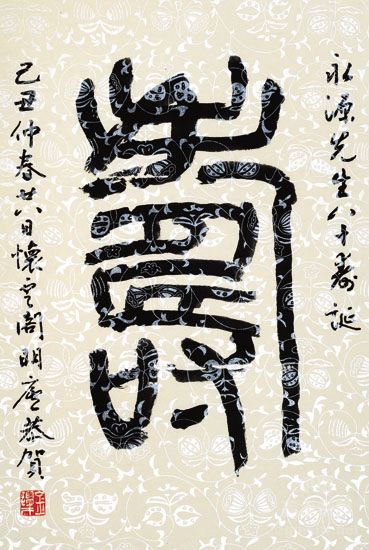 永源先生八十寿诞
壽
己丑仲春廿八日懷雲閣明虛恭賀